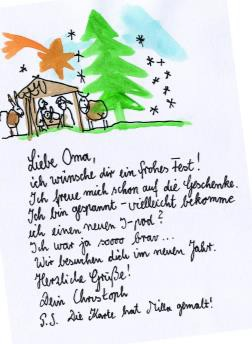 Liebe Oma,
ich wünsche dir ein frohes Fest!
Ich freue mich schon auf die Geschenke.
Ich bin gespannt - vielleicht bekomme
ich einen neuen I-pod?
Ich war ja sooo brav...
Wir besuchen dich im neuen Jahr.
Herzliche Grüße!
Dein Christoph
S.S. Die Karte hat Milla gemalt!